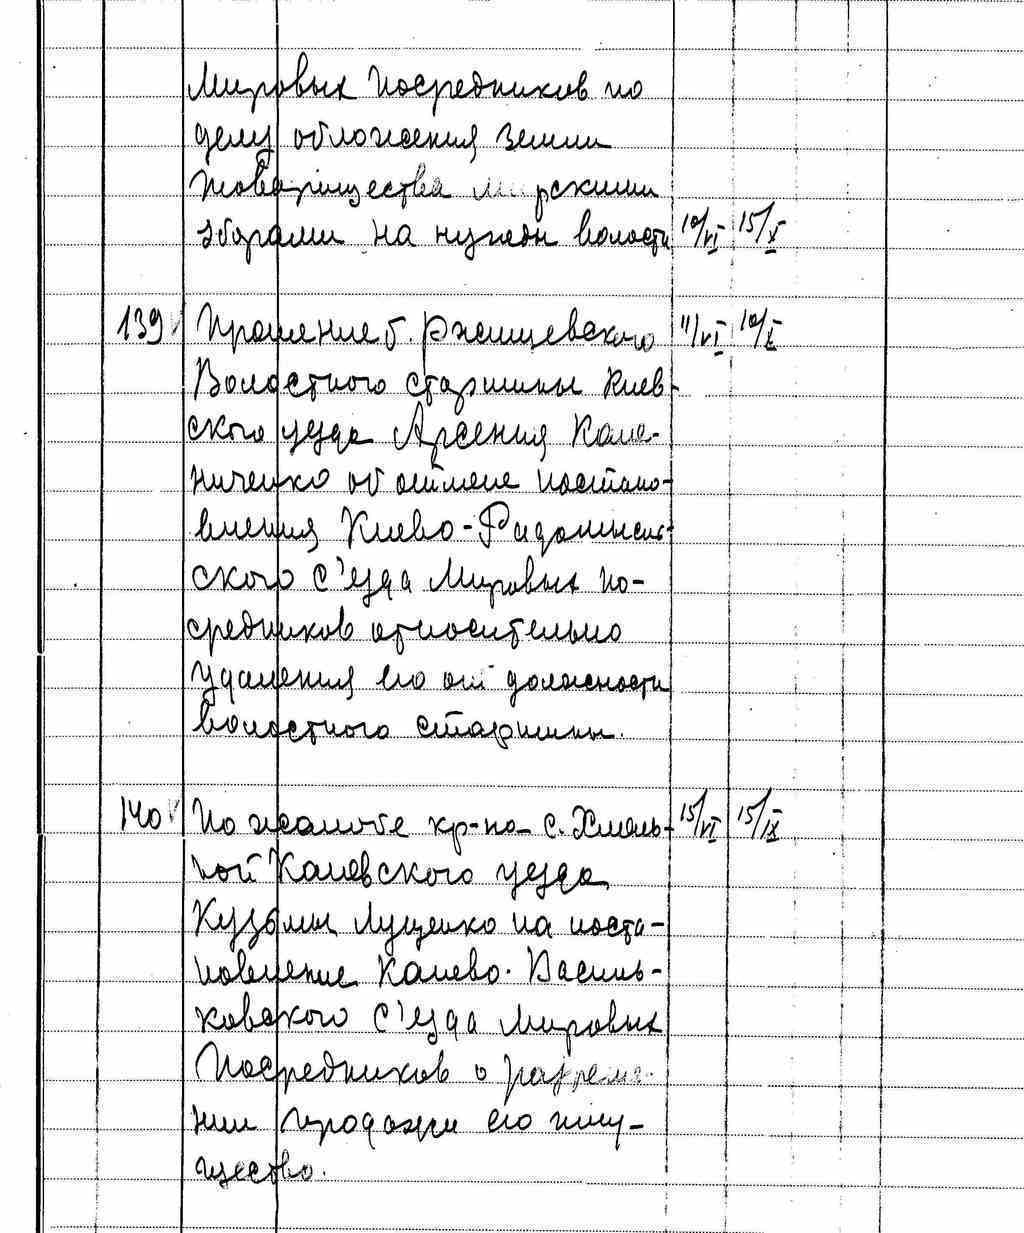 Мировых Посредников по
делу обложения земли
товарищества мирскими
зборами на нужды волости 10/VI 15/X
139 Прошение б. Ржищевского 11/VI 10/X
Волостного старшины Киев-
ского уезда Арсения Кала-
ниченко об отмене постано-
вления Киево-Радомысль-
ского С'езда Мировых по-
средников относительно
удаления его от должности
волостного старшины.
140 По жалобе кр-на с. Хмель- 15/VI 15/IX
ной Каневского уезда
Кузьмы Луценко на поста-
новление Канево-Василь-
ковского С'езда Мировых
Посредников о разреше-
нии продажи его иму-
щество.